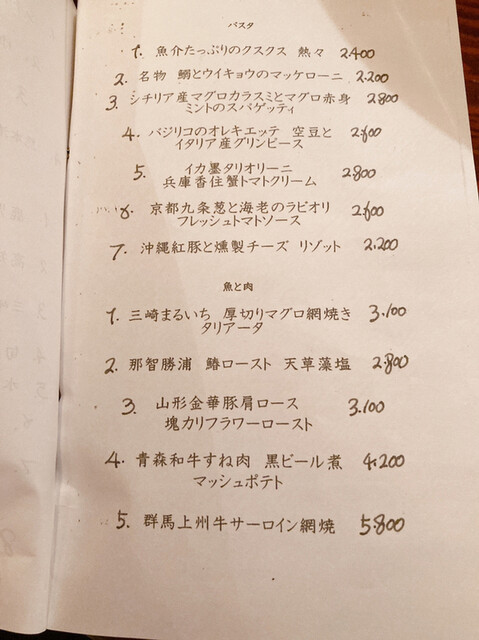 パスタ
1. 魚介たっぷりのクスクス 熱々 2.400
2. 名物 鰯とウイキョウのマッケローニ 2.200
3. シチリア産マグロカラスミとマグロ赤身 2800
ミントのスパゲッティ
4. バジリコのオレキエッテ 空豆と 2.600
イタリア産グリンピース
5. イカ墨タリオリーニ 2.800
兵庫香住蟹トマトクリーム
6. 京都九条葱と海老のラビオリ 2.600
フレッシュトマトソース
7. 沖縄紅豚と燻製チーズ リゾット 2.200
魚と肉
1. 三崎まるいち 厚切りマグロ網焼き 3.100
タリアータ
2. 那智勝浦 鰆ロースト 天草藻塩 2.800
3. 山形金華豚肩ロース 3.100
塊カリフラワーロースト
4. 青森和牛すね肉 黒ビール煮 4.200
マッシュポテト
5. 群馬上州牛サーロイン網焼 5.800